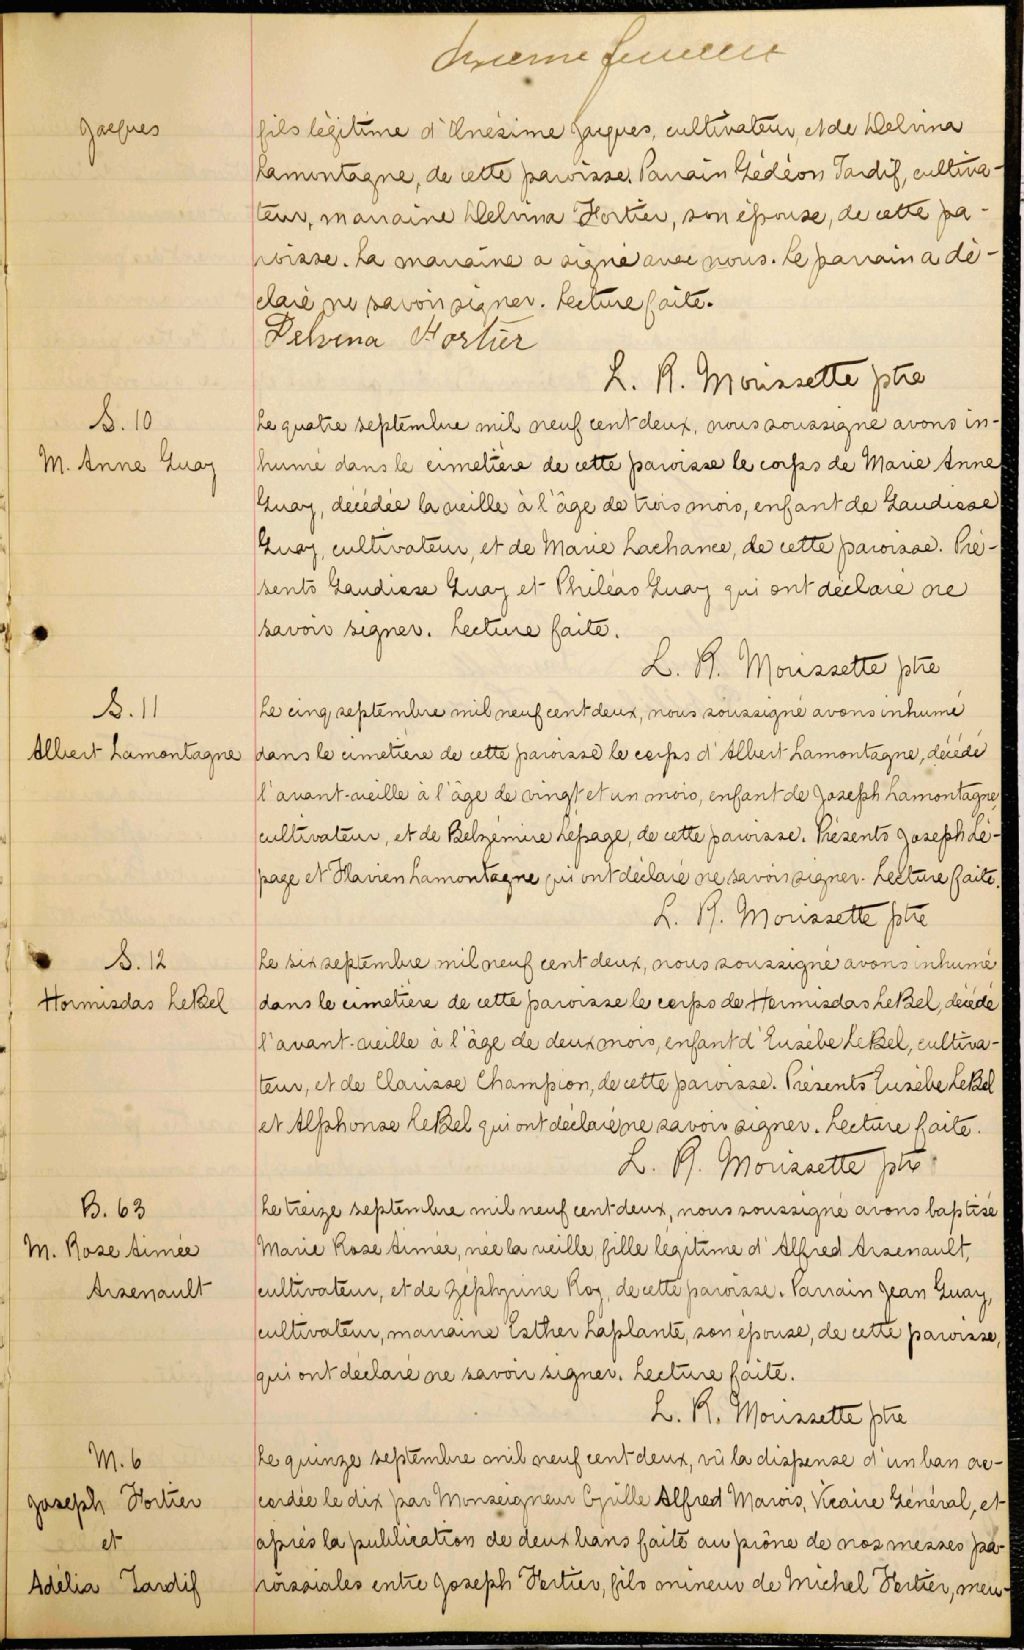 Jacques
fils légitime d'Onésime Jacques, cultivateur, et de Delvina
Lamontagne, de cette paroisse. Parrain Gédéon Tardif, cultiva-
teur, marraine Delvina Fortier, son épouse, de cette pa-
roisse. La marraine a signé avec nous. Le parrain a dé-
claré ne savoir signer. Lecture faite.
Delvena Fortier
L. R. Morissette ptre
S. 10
M. Anne Guay
Le quatre septembre mil neuf cent deux, nous soussigné avons in-
humé dans le cimetière de cette paroisse le corps de Marie Anne
Guay, décédée la veille à l'âge de trois mois, enfant de Gaudiose
Guay, cultivateur, et de Marie Lachance, de cette paroisse. Pré-
sents Gaudiose Guay et Philéas Guay qui ont déclaré ne
savoir signer. Lecture faite.
L. R. Morissette ptre
S. 11
Albert Lamontagne
Le cinq septembre mil neuf cent deux, nous soussigné avons inhumé
dans le cimetière de cette paroisse le corps d'Albert Lamontagne, décédé
l'avant-veille à l'âge de vingt et un mois, enfant de Joseph Lamontagne,
cultivateur, et de Belzémire Lépage, de cette paroisse. Présents Joseph Lé-
page et Flavien Lamontagne qui ont déclaré ne savoir signer. Lecture faite.
L. R. Morissette ptre
S. 12
Hormisdas LeBel
Le six septembre mil neuf cent deux, nous soussigné avons inhumé
dans le cimetière de cette paroisse le corps de Hormisdas LeBel, décédé
l'avant-veille à l'âge de deux mois, enfant d'Eusèbe LeBel, cultiva-
teur, et de Clarisse Champion, de cette paroisse. Présents Eusèbe LeBel
et Alphonse LeBel qui ont déclaré ne savoir signer. Lecture faite.
L. R. Morissette ptre
B. 63
M. Rose Aimée
Arsenault
Le treize septembre mil neuf cent deux, nous soussigné avons baptisé
Marie Rose Aimée, née la veille, fille légitime d'Alfred Arsenault,
cultivateur, et de Zéphyrine Roy, de cette paroisse. Parrain Jean Guay,
cultivateur, marraine Esther Laplante, son épouse, de cette paroisse,
qui ont déclaré ne savoir signer. Lecture faite.
L. R. Morissette ptre
M. 6
Joseph Fortier
et
Adélia Tardif
Le quinze septembre mil neuf cent deux, vû la dispense d'un ban ac-
cordée le dix par Monseigneur Cyrille Alfred Marois, Vicaire Général, et
après la publication de deux bans faite au prône de nos messes pa-
roissiales entre Joseph Fortier, fils mineur de Michel Fortier, meu-